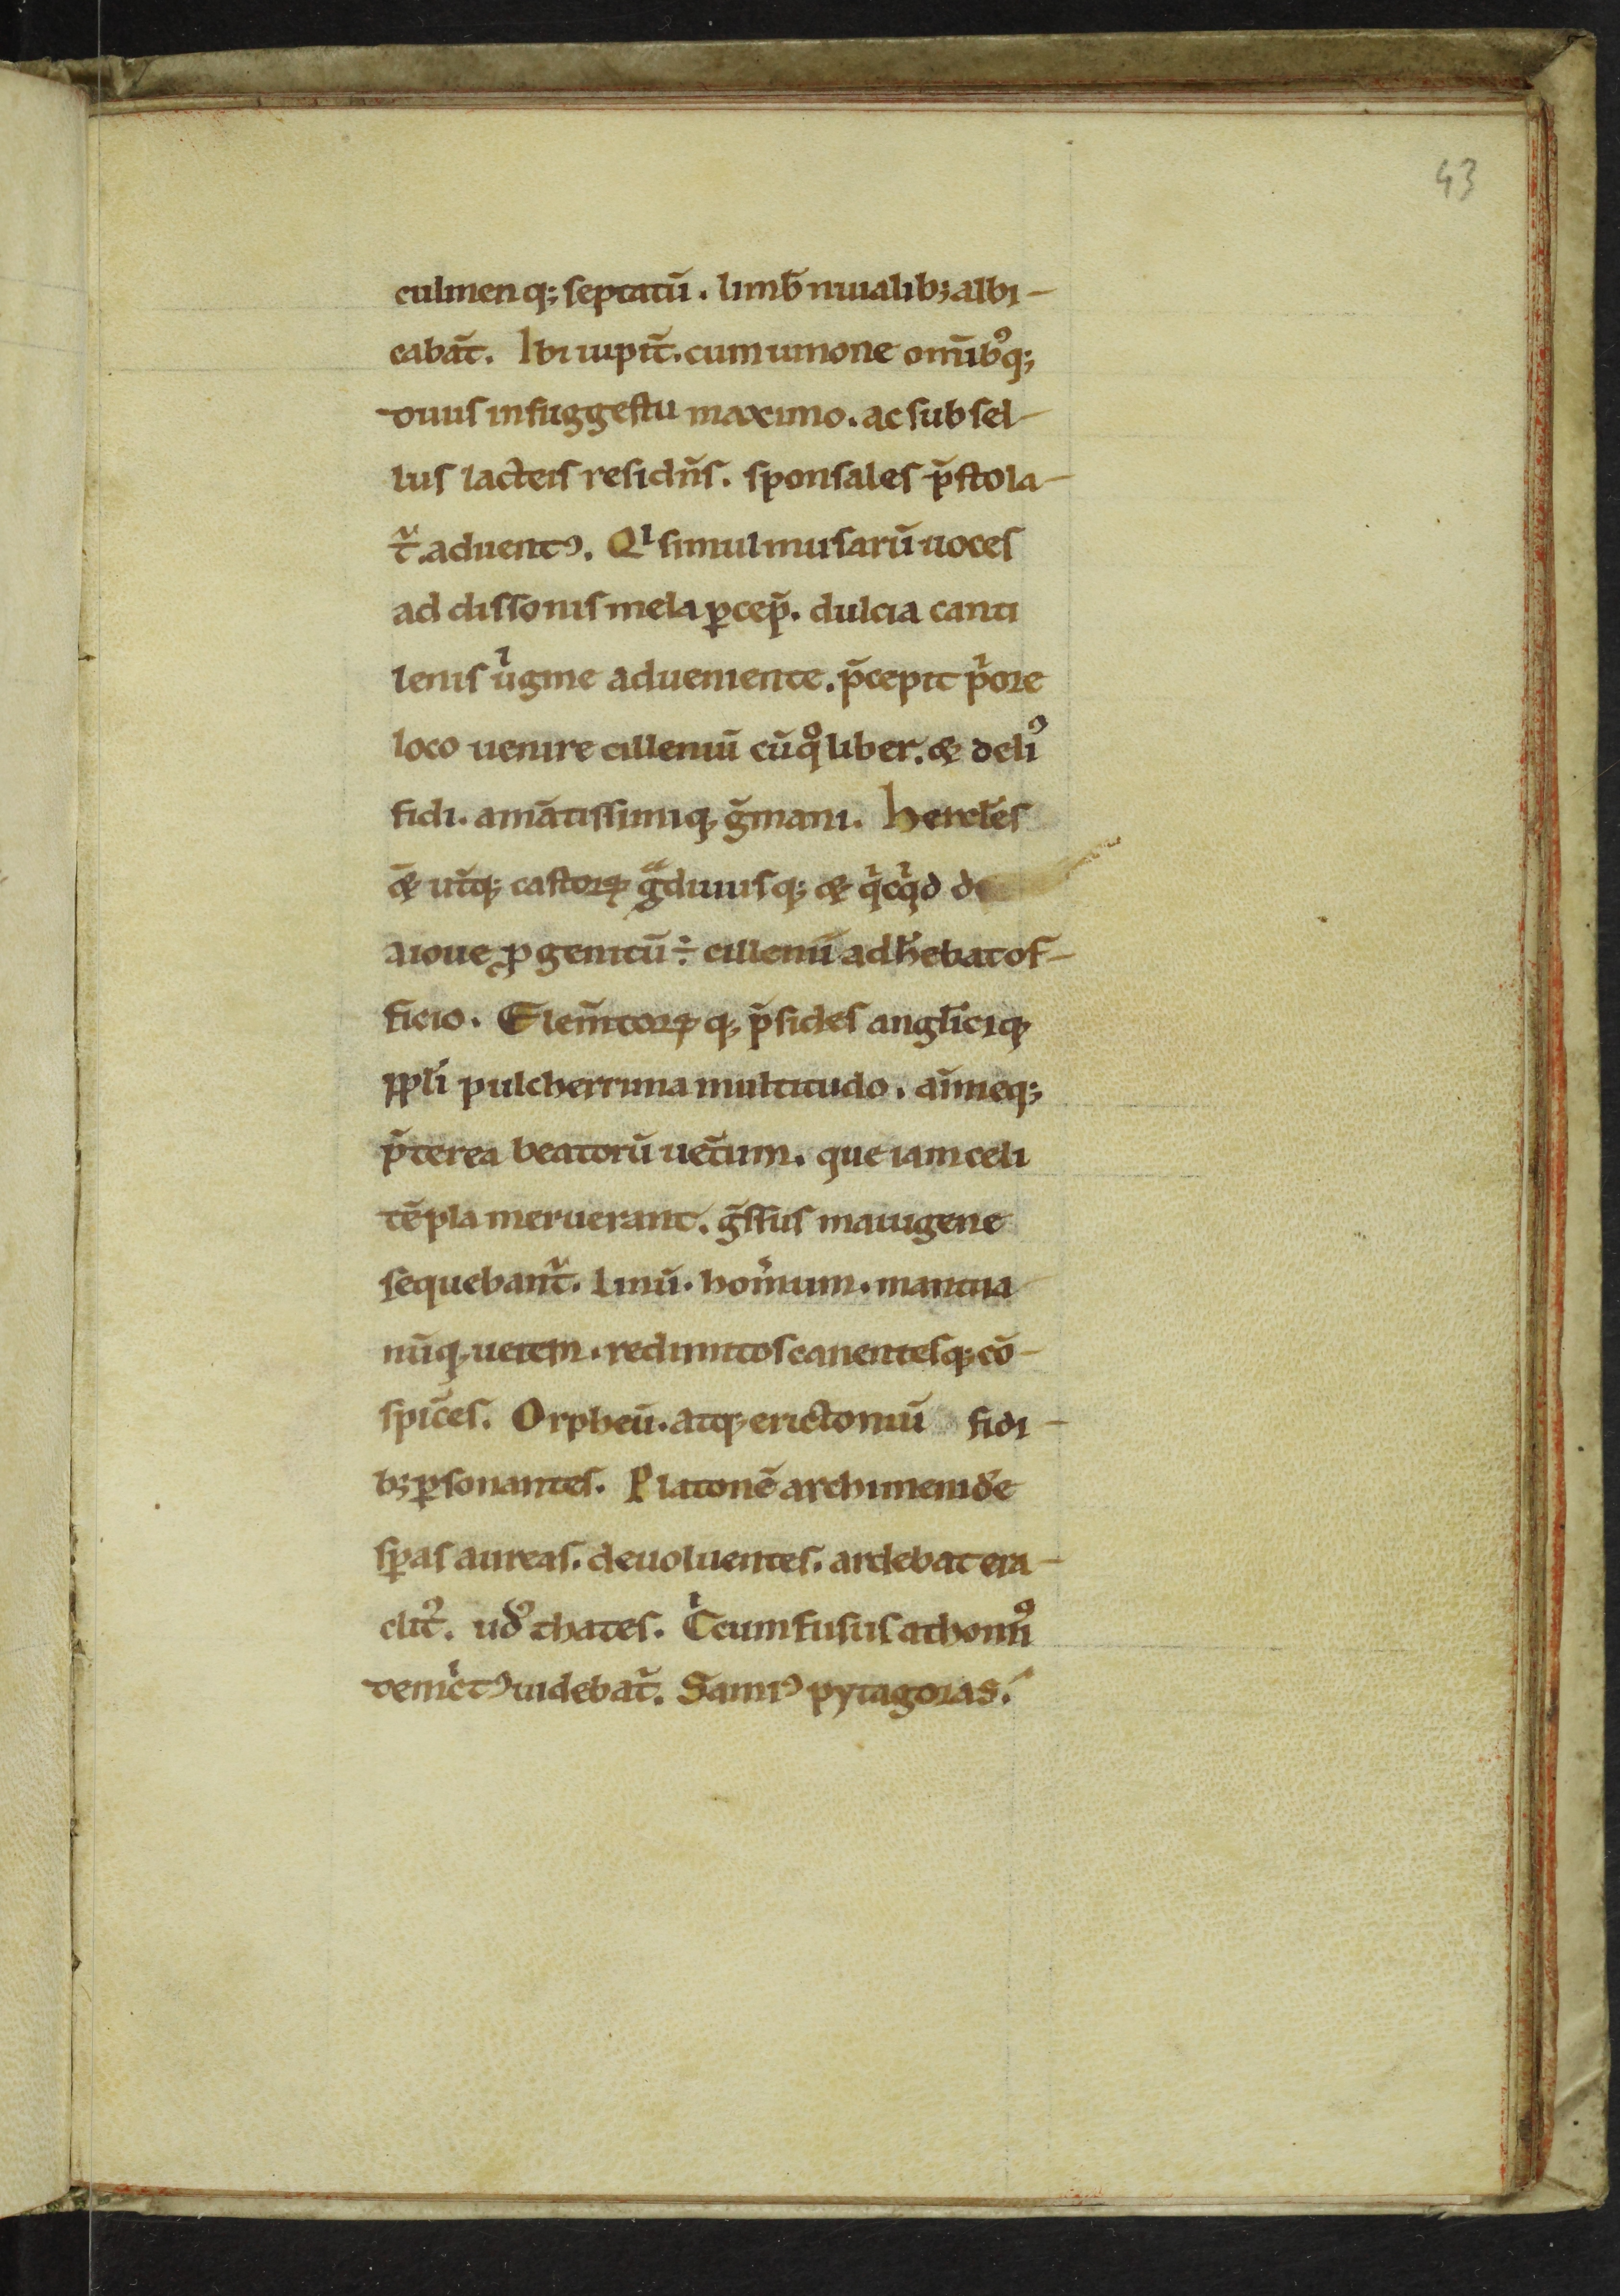 43
culmen q; septatū. limb̄ niuialib; albi-
cabāt. Ibi iupit̄. cum iunone om̄ibꝰq;
diuis in suggestu maximo. ac subsel-
liis lacteis resid̄ns. sponsales p̄stola-
t᷑. aduentꝰ. Qͥ simul musarū uoces
ad dissonis mela ꝑcep̄. dulcia canti
lenis uͥgine adueniente. p̄cepit pͥore
loco uenire cilleniū cū qͦ liber. ⁊ deliꝰ
fidi. amātissimiq; ḡmani. Hercl̄es
⁊ ut̄q; castorꝝ gͣdiuusq; ⁊ qͥcqͥd de
a ioue ꝓgenitū ÷ cillenii adh̄ebat of-
ficio. Elem̄torꝝ q; p̄sides angl̄iciq;
ppl̄i pulcherrima multitudo. aīmeq;
p̄terea beatorū uet̄um. que iam celi
tēpla meruerant. ḡssus maiugene
sequebant᷑. linū. hom̄ium. mantua
nūq; uatem. redimitos canentesq; cō-
spic̄es. Orpheū. atq; erictoniū fidi-
b; ꝑsonantes. Platonē archimenid̄e
sp̄as aureas. deuoluentes. ardebat era-
clitꝰ. udꝰ thates. Cͥcumfusus athomꝰ
demͨͥtꝰ uidebat᷑. Samiꝰ pytagoras.